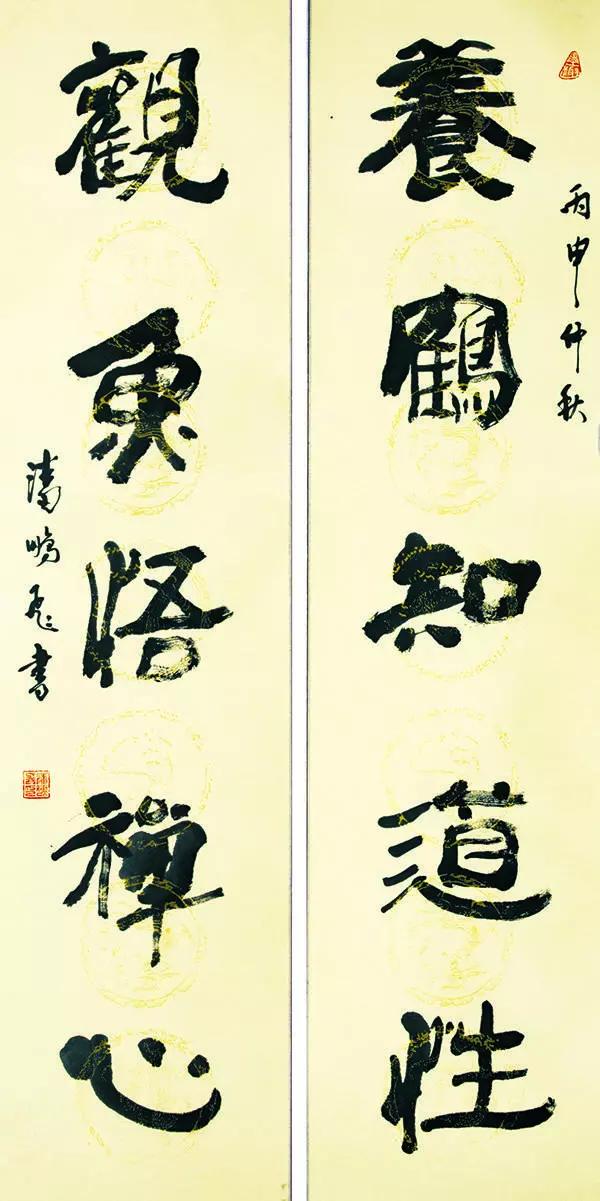 丙申仲秋
養鶴知道性
觀魚悟禪心
鵬飛書